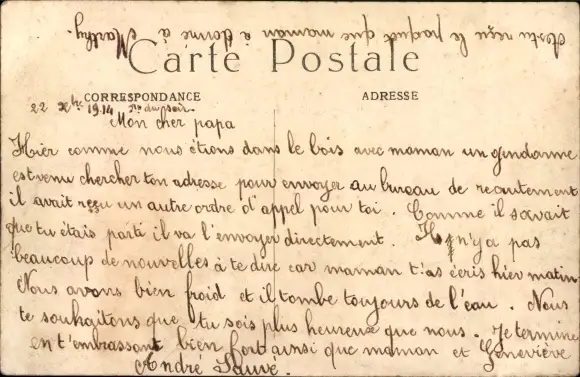 As tu reçu le paquet que maman a donné à Marthy.
Carte Postale
CORRESPONDANCE
ADRESSE
22 Xbre 1914 7h du soir
Mon cher papa
Hier comme nous étions dans le bois avec maman un gendarme
est venu chercher ton adresse pour envoyer au bureau de recrutement
il avait reçu un autre ordre d'appel pour toi. Comme il savait
que tu étais parti il va l'envoyer directement. Il n'y a pas
beaucoup de nouvelles à te dire car maman t'as écris hier matin
Nous avons bien froid et il tombe toujours de l'eau. Nous
te souhaitons que tu sois plus heureux que nous. Je termine
en t'embrassant bien fort ainsi que maman et Geneviève
André Sauve.